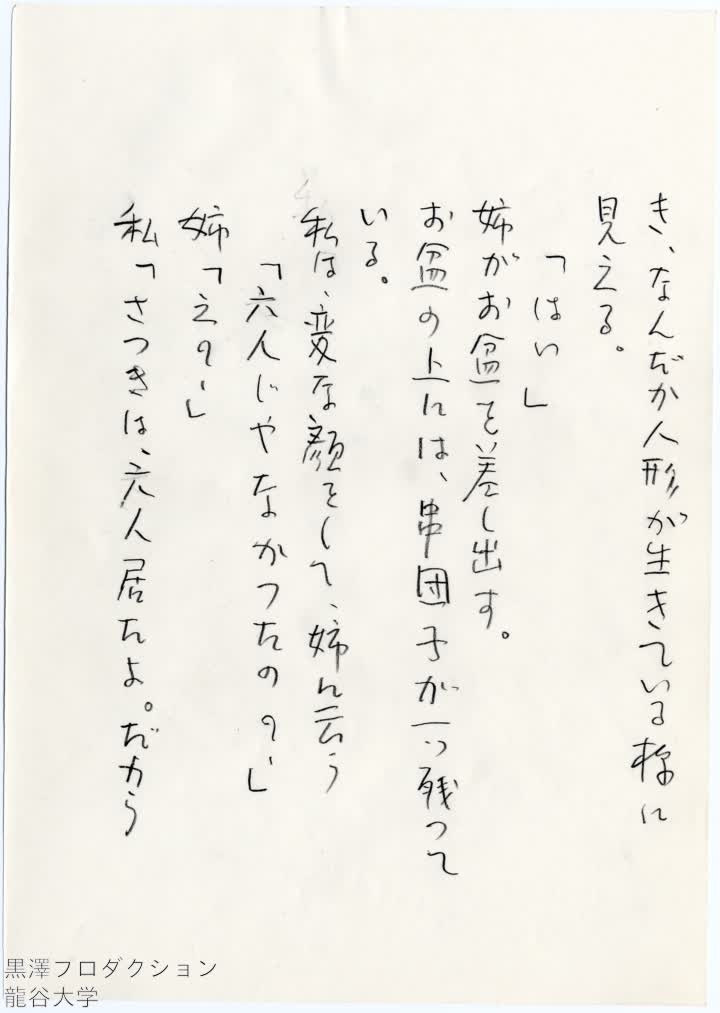 き、なんだか人形が生きている様に
見える。
「はい」
姉がお盆を差し出す。
お盆の上には、串団子が一つ残って
いる。
私は、変な顔をして、姉に云う
「六人じやなかつたの?」
姉「え?」
私「さつきは、六人居たよ。だから
黒澤プロダクション
龍谷大学